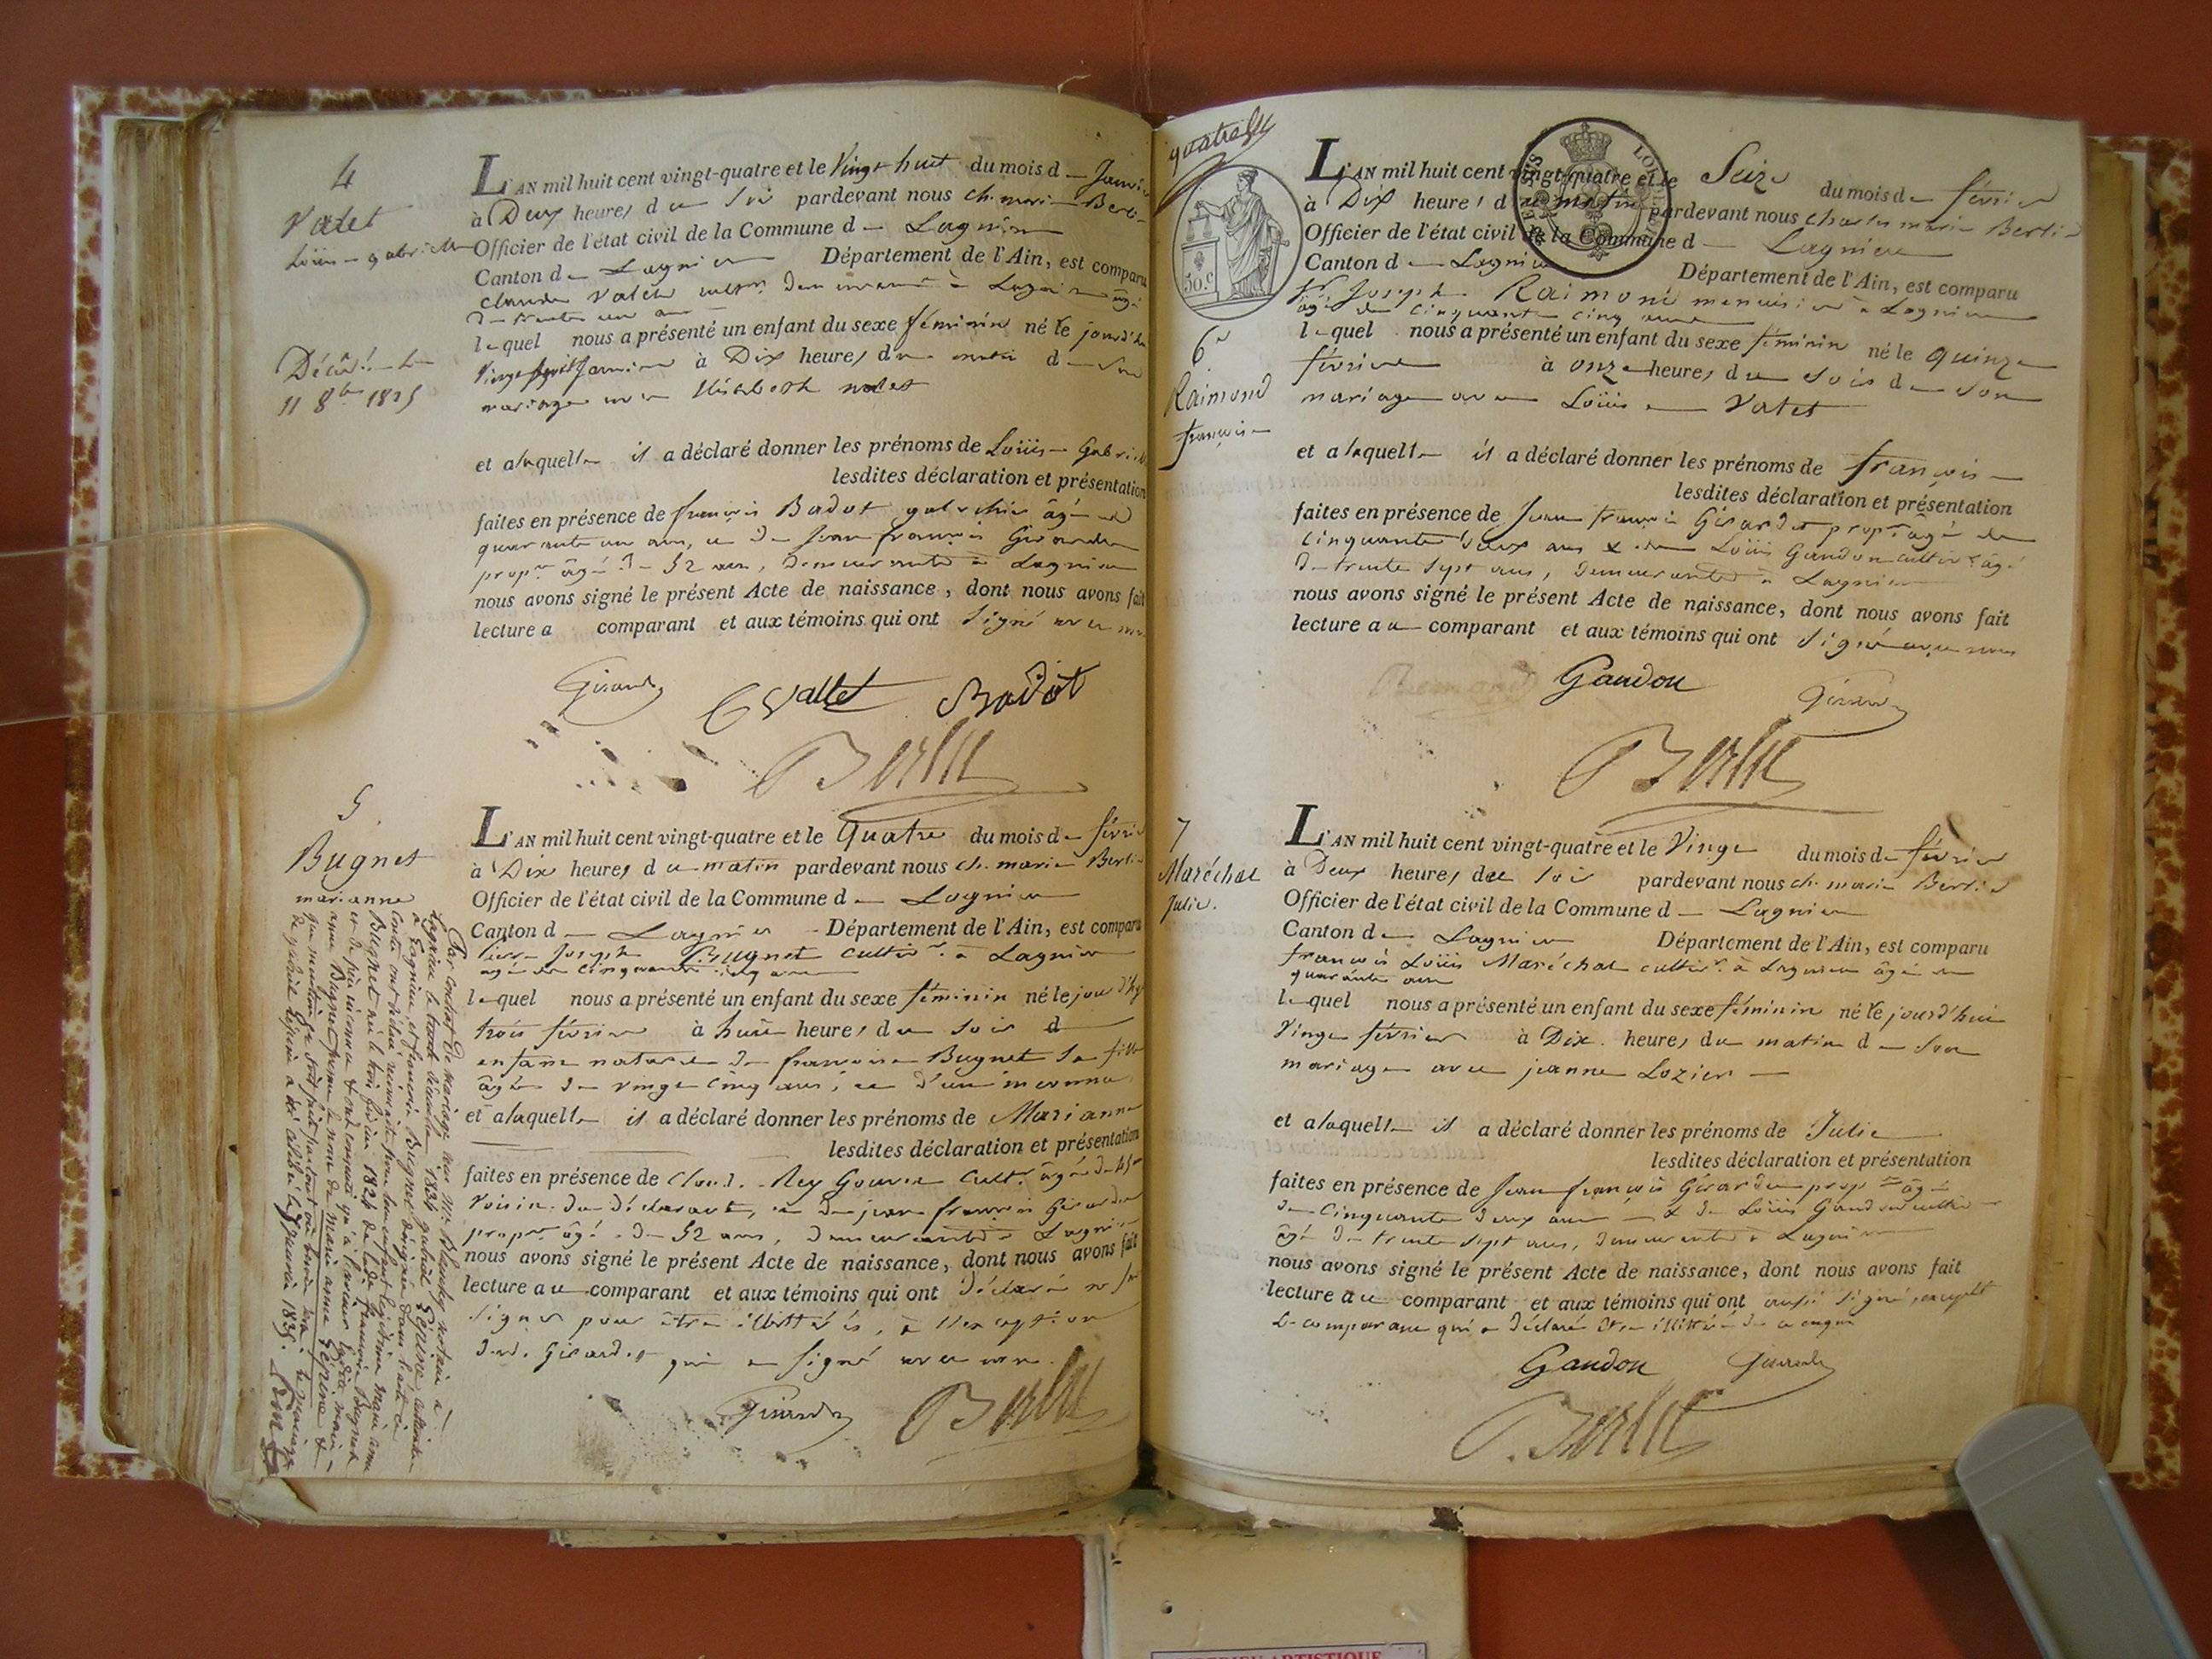 4
Vatet
Loüise gabrielle
Décédée le
11 8bre 1825
L'AN mil huit cent vingt-quatre et le Vingt huit du mois de Janvier
à Deux heures du soir pardevant nous ch. marie Berlie
Officier de l'état civil de la Commune de Lagnieu
Canton de Lagnieu Département de l'Ain, est comparu
Claude Vatet demeurant à Lagnieu âgé
de trente un ans
lequel nous a présenté un enfant du sexe féminin né le jourd'hui
Vingt huit Janvier à Dix heures du matin de son
mariage avec
et a laquelle il a déclaré donner les prénoms de Loüise Gabrielle
lesdites déclaration et présentation
faites en présence de françois Badot âgé de
quarante un ans, et de Jean françois Girardet
propre âgé de 52 ans, demeurants à Lagnieu
nous avons signé le présent Acte de naissance, dont nous avons fait
lecture a comparant et aux témoins qui ont signé avec nous
Girardet Vallet Badot
Berlie
5
Bugnet
marianne
L'AN mil huit cent vingt-quatre et le Quatre du mois de février
à Dix heures du matin pardevant nous ch. marie Berlie
Officier de l'état civil de la Commune de Lagnieu
Canton de Lagnieu Département de l'Ain, est comparu
Pierre Joseph Bugnet cultivr à Lagnieu
âgé de cinquante cinq ans
lequel nous a présenté un enfant du sexe féminin né le jour d'hyer
trois février à huit heures du soir d
enfant naturel de françoise Bugnet sa fille
âgée de vingt cinq ans, et d'un inconnu
et a laquelle il a déclaré donner les prénoms de Marianne
lesdites déclaration et présentation
faites en présence de Claude Rey Gourre cultr âgé de 45 ans
voisin du déclarant, et de jean françois Girardet
propre âgé de 52 ans, demeurants à Lagnieu
nous avons signé le présent Acte de naissance, dont nous avons fait
lecture au comparant et aux témoins qui ont déclaré ne sa
signer pour être illettrés, à l'exception
dud. Girardet qui a signé avec nous.
Girardet Berlie
Par contrat de mariage reçu Me Blanchy notaire à
Lagnieu le trente décembre 1834 gabriel Pépine, cultivateur
à Lagnieu, et françoise Bugnet désignée dans l'acte ci
contre ont déclaré reconnaître pour leur enfant légitime marie anne
Bugnet née le trois février 1824 de lade françoise Bugnet
et de père inconnu & ont consenti qu'à l'avenir ladite marie
anne Bugnet prenne le nom de marie anne Pépine &
que mention en soit faite partout où besoin sera. Le mariage
de gabriel Pépine a été célébré le janvier 1835.
quatre
30.C
6e
Raimond
françoise
L'AN mil huit cent vingt-quatre et le Seize du mois de février
à Dix heures du matin pardevant nous charles marie Berlie
Officier de l'état civil de la Commune de Lagnieu
Canton de Lagnieu Département de l'Ain, est comparu
Sr Joseph Raimond menuisier à Lagnieu
âgé de cinquante cinq ans
lequel nous a présenté un enfant du sexe féminin né le quinze
février à onze heures du soir de son
mariage avec Loüise Vatet
et a laquelle il a déclaré donner les prénoms de françoise
lesdites déclaration et présentation
faites en présence de Jean françois Girardet propre âgé de
cinquante deux ans & de Loüis Gandon cultivr âgé
de trente sept ans, demeurants à Lagnieu
nous avons signé le présent Acte de naissance, dont nous avons fait
lecture au comparant et aux témoins qui ont signé avec nous
Remand Gandon Girardet
Berlie
7
Maréchal
Julie.
L'AN mil huit cent vingt-quatre et le Vingt du mois de février
à Deux heures du soir pardevant nous ch. marie Berlie
Officier de l'état civil de la Commune de Lagnieu
Canton de Lagnieu Département de l'Ain, est comparu
françois Loüis Maréchal cultivr à Lagnieu âgé de
quarante ans
lequel nous a présenté un enfant du sexe féminin né le jourd'hui
Vingt février à Dix heures du matin de son
mariage avec jeanne Lozier
et a laquelle il a déclaré donner les prénoms de Julie
lesdites déclaration et présentation
faites en présence de Jean françois Girardet propre âgé
de cinquante deux ans & de Loüis Gandon cultivr
âgé de trente sept ans, demeurants à Lagnieu
nous avons signé le présent Acte de naissance, dont nous avons fait
lecture au comparant et aux témoins qui ont aussi signé, excepté
le comparant qui a déclaré être illitéré de ce enquis
Gandon Girardet
Berlie